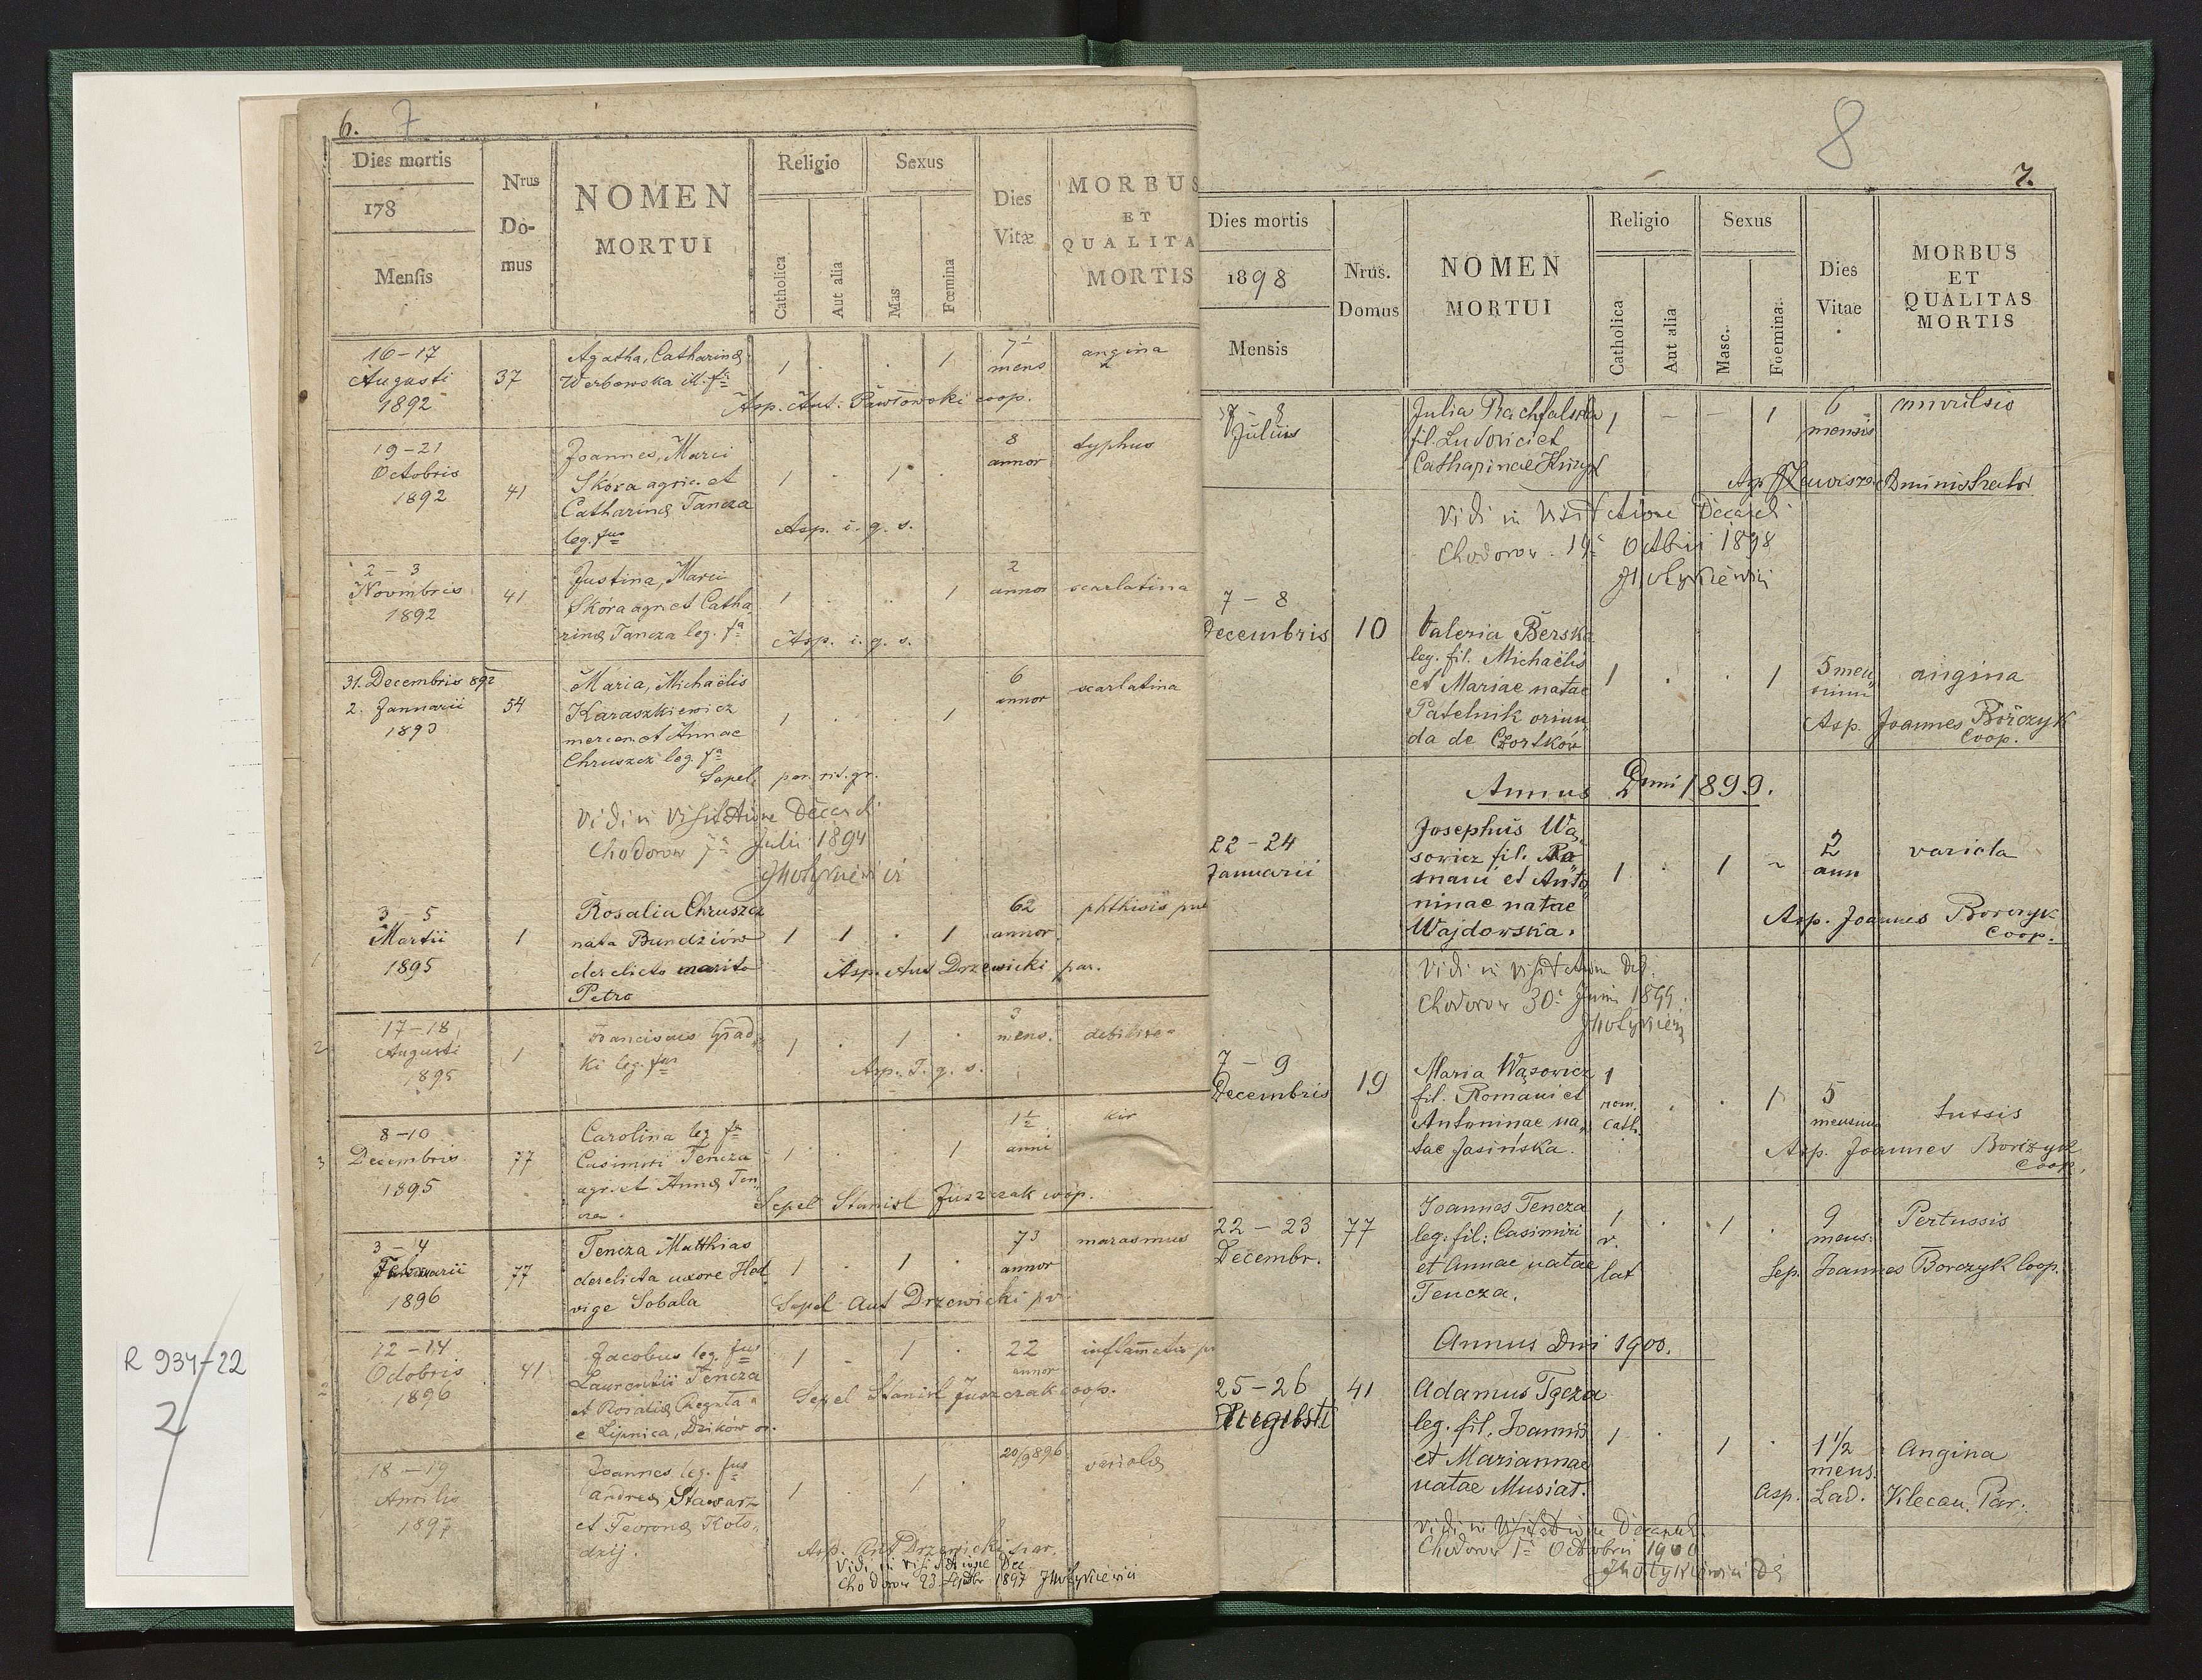 6. 7
Dies mortis
178
Mensis
Nrus
Do-
mus
NOMEN
MORTUI
Religio
Catholica
Aut alia
Sexus
Mas
Fœmina
Dies
Vitæ
MORBUS
ET
QUALITA
MORTIS
16-17
Augusti
1892
37
Agatha, Catharinæ
Werbowska ill. fa
1 . . 1
7
mens
angina
Asp. Ant: Pawłowski coop.
19-21
Octobris
1892
41
Joannes, Marci
Skóra agric. et
Catharinæ Tancza
leg. fus
1 . 1 .
8
annor
typhus
Asp. i. g. s.
2 - 3
Novmbris
1892
41
Justina, Marci
Skóra agr. et Catha
rinæ Tancza leg. fa
1 . . 1
2
annor
scarlatina
Asp. i. g. s.
31. Decembris 892
2. Januarii
1893
54
Maria, Michaëlis
Karaszkiewicz
mercen. et Annae
Chruszcz leg. fa
1 . . 1
6
annor
scarlatina
Sepel. par. rit. gr.
Vidi in visitatione Decanali
Chodorow 7a Julii 1894
3 - 5
Martii
1895
1
Rosalia Chruszcz
nata Bundziów
derelicto marito
Petro
1 1 . 1
62
annor.
phthisis pul
Asp. Ant Drzewicki par.
17-18
Augusti
1895
2
1
Franciscus Grad„
ki leg. fus
1 . 1 .
3
mens.
debilitas
Asp. I. g. s.
8-10
Decembris
1895
3
77
Carolina leg fa
Casimiri Tencza
agr. et Annæ Ten„
cza.
1 . . 1
1 1/2
anni
kir
Sepel Stanisl Juszczak coop.
3 - 4
Februarii
1896
1
77
Tencza Matthias
derelicta uxore Hed
vige Sobala
1 . 1 .
73
annor
marasmus
Sepel Ant Drzewicki par
12-14
Octobris
1896
2
41
Jacobus leg. fus
Laurentii Tencza
et Rosaliæ Reguła
e Lipnica, Dzików or.
1 . 1 .
22
annor
inflammatio p
Sepel Stanisl Juszczak coop.
18-19
Aprilis
1897
1
Joannes leg. fus
Andreæ Stawarz
et Feronæ Koło„
dzij.
1 . 1 .
20/9 896
variolæ
Asp. Ant Drzewicki par.
Vidi in visitatione Dec
Chodorow 23 Septbr 1897
8
7.
Dies mortis
1898
Mensis
Nrus.
Domus
NOMEN
MORTUI
Religio
Catholica
Aut alia
Sexus
Masc.
Foemina.
Dies
Vitae
MORBUS
ET
QUALITAS
MORTIS
7 - 8
Julius
Julia Rachfalska
fil. Ludovici et
Catharinae
1 - - 1
6
mensis
Administrator
Vidi in Visitatione Decanali
Chodorow. 14a Octbris 1898
7 - 8
Decembris
10
Valeria Berska
leg. fil. Michaëlis
et Mariae natae
Patelnik oriun„
da de Czortków
1 . . 1
5 men„
sium
angina
Asp. Joannes Borczyk
Coop.
Annus Dmni 1899.
22-24
Januarii
Josephus Wą„
sowicz fil. Ro„
mani et Anto„
ninae natae
Wajdowska.
1 . 1 ~
2
ann
variola
Asp. Joannes Borczyk
Coop.
Vidi in visitatione Dec.
Chodorow 30a Junii 1899.
7 - 9
Decembris
19
Maria Wąsowicz
fil. Romani et
Antoninae na„
tae Jasińska.
1
rom.
cath.
. . 1
5
mensium
tussis
Asp. Joannes Borczyk
Coop.
22 - 23
Decembr.
77
Joannes Tencza
leg. fil: Casimiri
et Annae natae
Tencza.
1
r.
lat
. 1 .
9
mens:
Pertussis
Sep. Joannes Borczyk Coop.
Annus Dni 1900.
25-26
Augusti
41
Adamus Tęcza
leg. fil. Joannis
et Mariannae
natae Musiat.
1 . 1 .
1 1/2
mens.
Angina
Asp. Lad. Klecan. Par.
Vidi in Visitatione Decanali
Chodorow 1a Octobris 1900
R 934-22
2